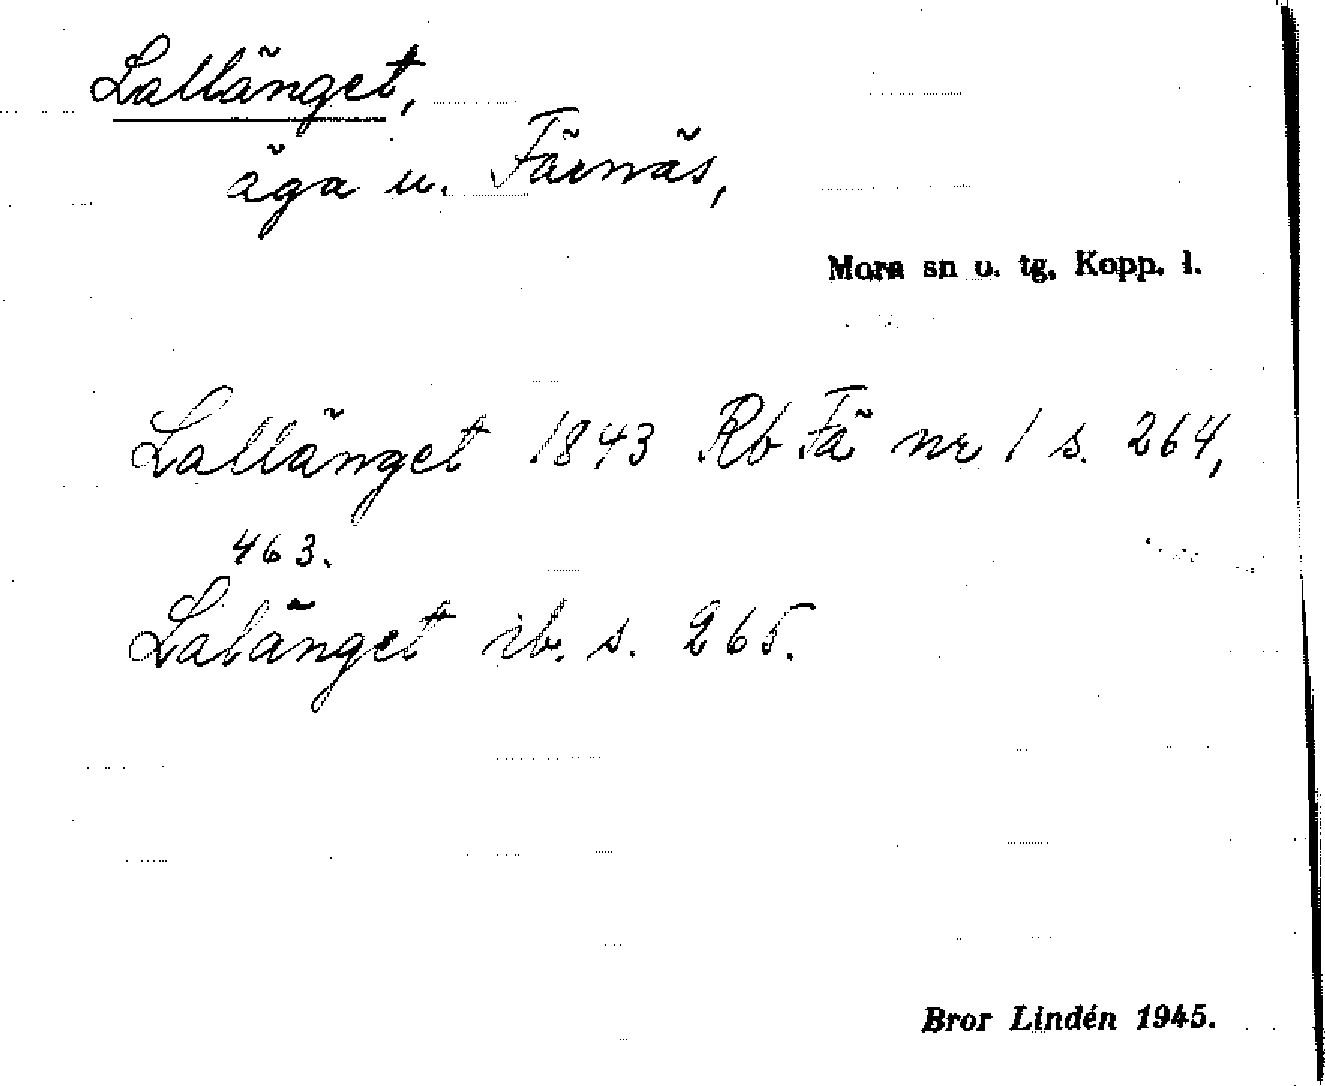 Lallänget,
äga u. Färnäs,
Mora sn o. tg, Kopp. l.
Lallänget 1843 Rb Fä nr 1 s. 264,
463.
Lalänget ib. s. 265.
Bror Lindén 1945.